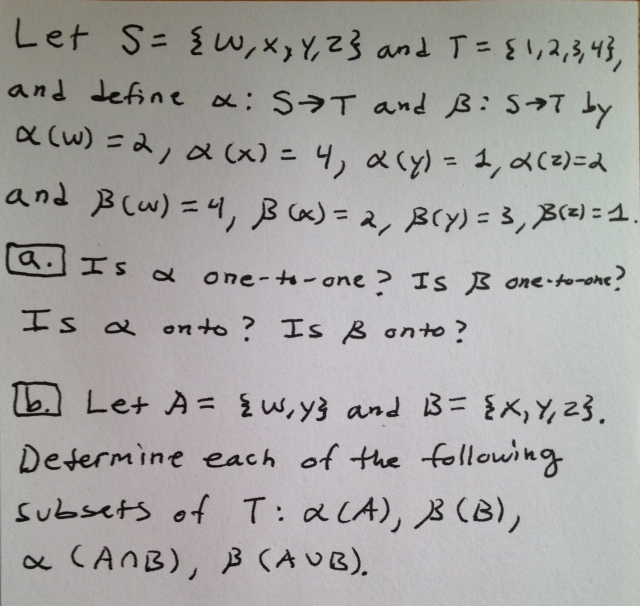 Let S = {w, x, y, z} and T = {1,2,3,4},
and define α: S→T and β: S→T by
α(w) = 2, α(x) = 4, α(y) = 1, α(z)=2
and β(w) = 4, β(x) = 2, β(y) = 3, β(z)=1.
a. Is α one-to-one? Is β one-to-one?
Is α onto? Is β onto?
b. Let A = {w,y} and B = {x, y, z}.
Determine each of the following
subsets of T: α(A), β(B),
α(A∩B), β(A∪B).